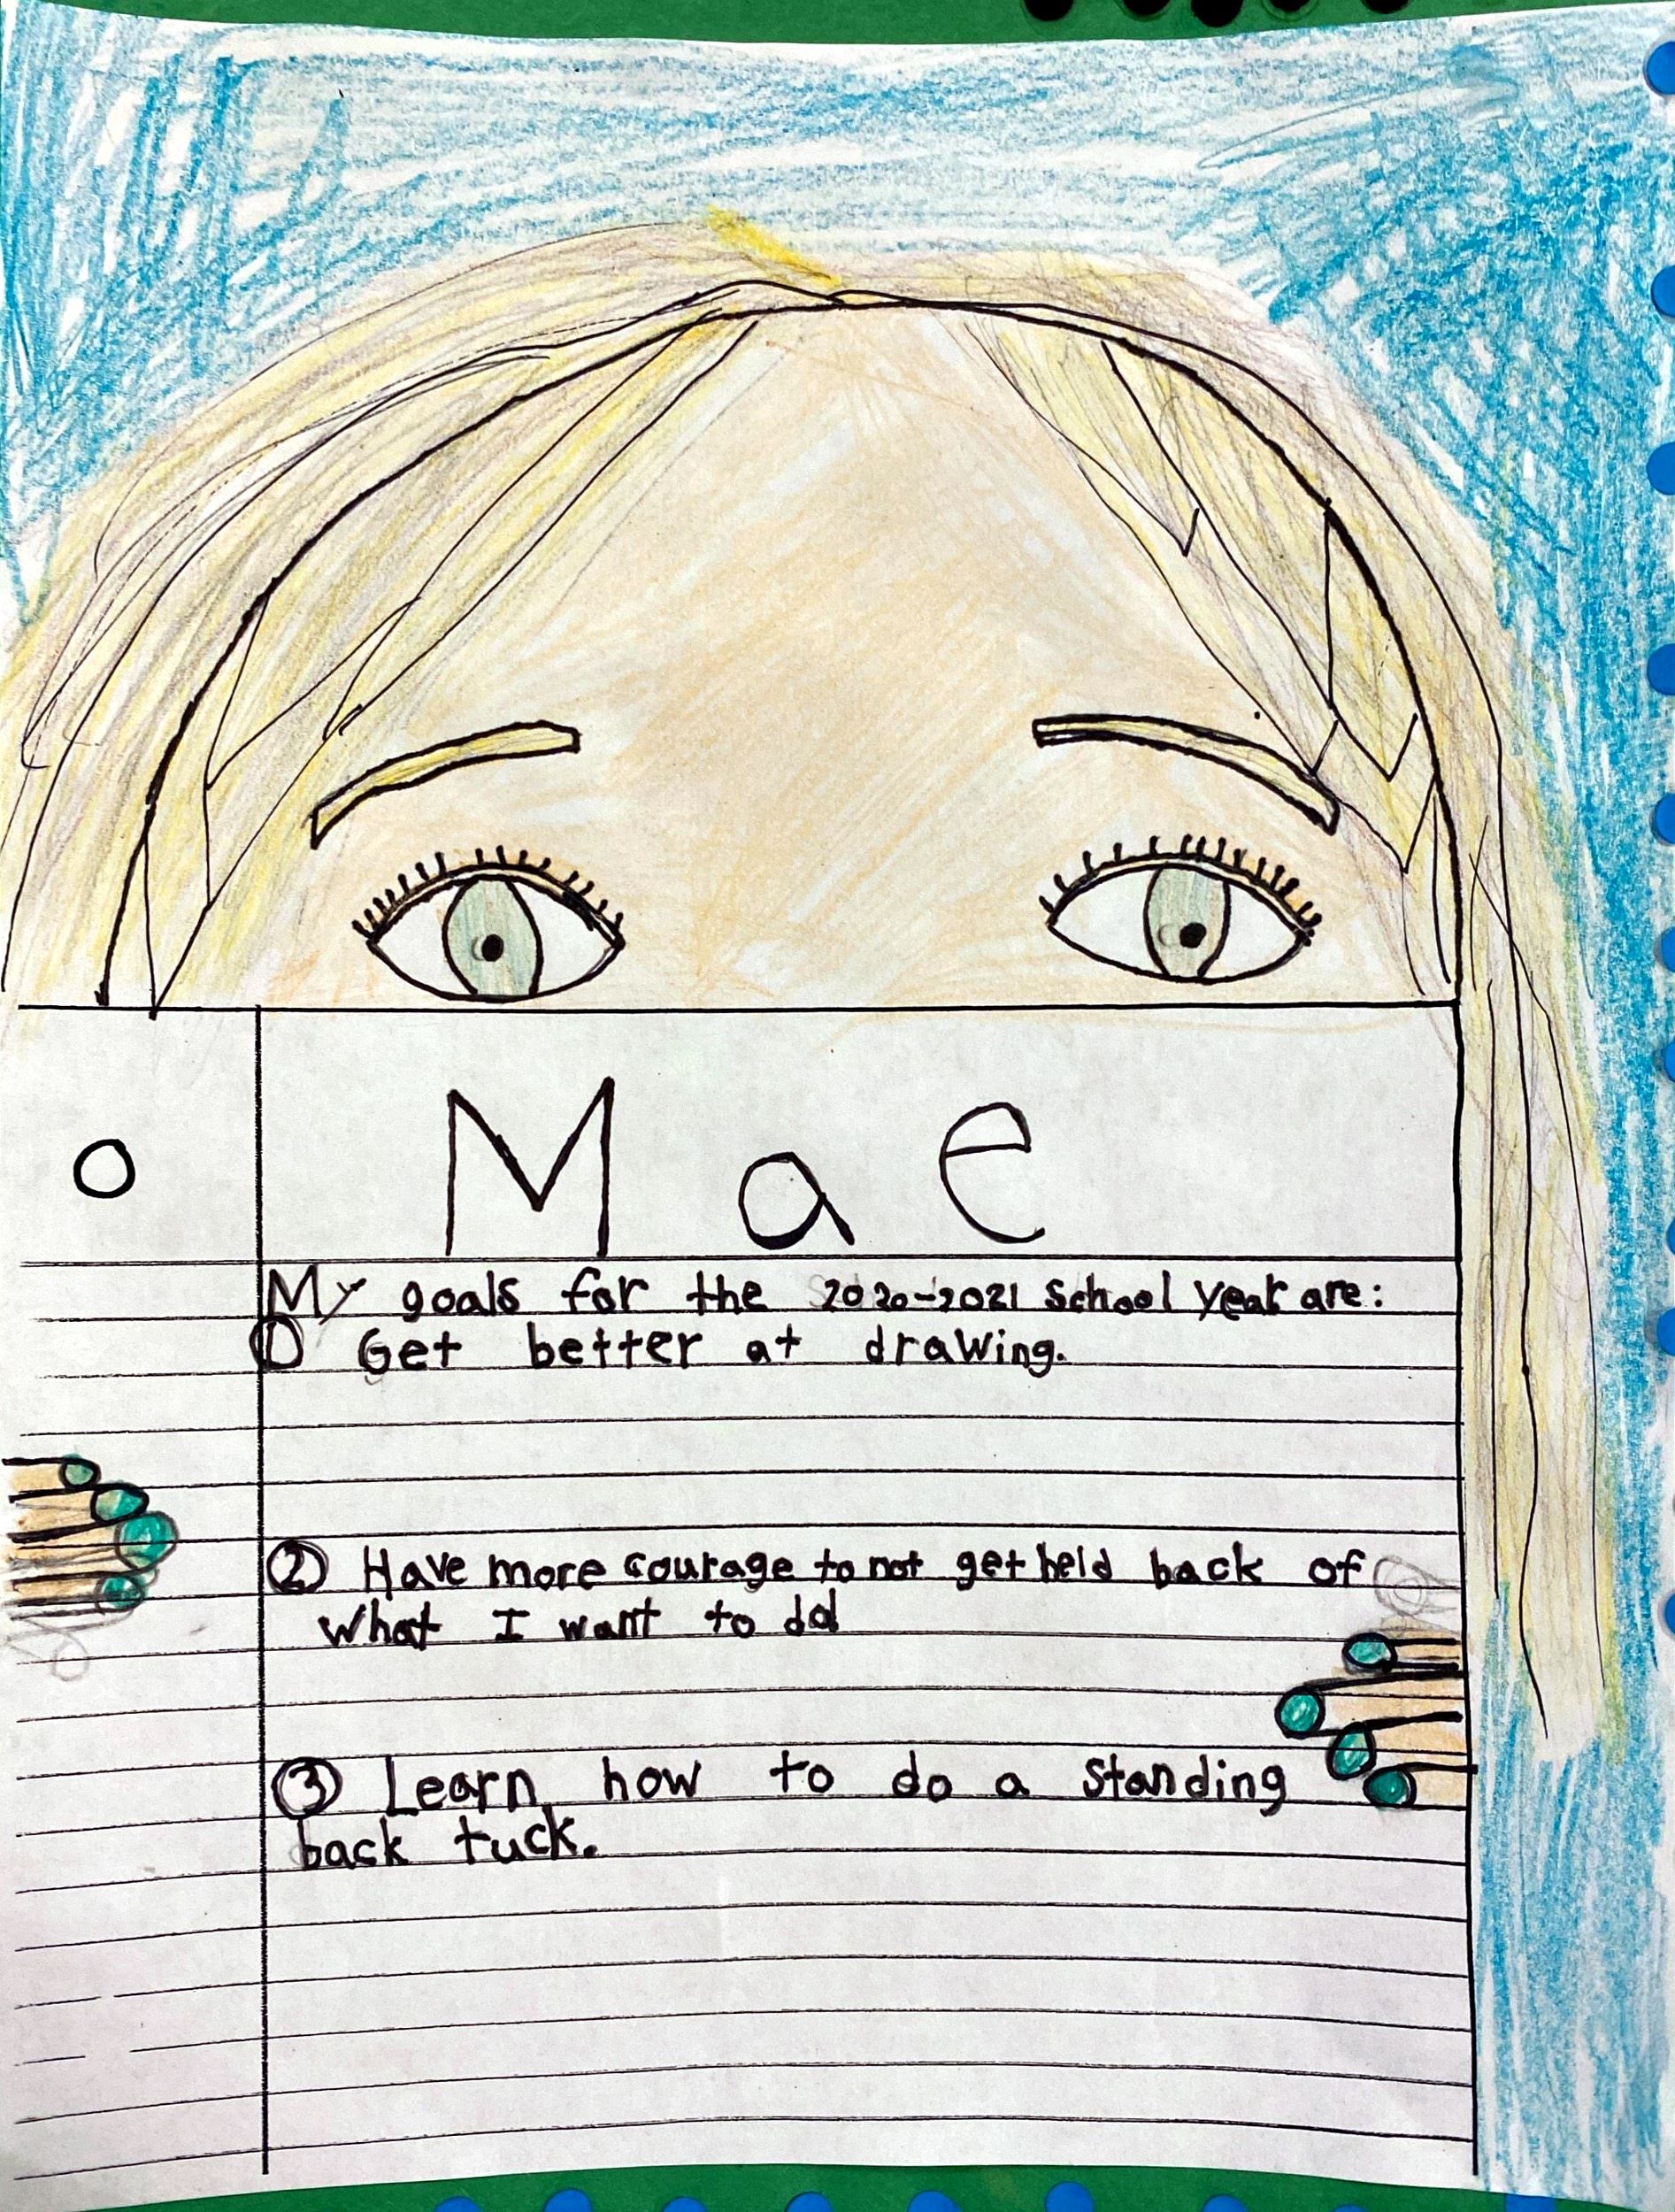 Mae
My goals for the 2020-2021 School year are:
① Get better at drawing.
② Have more courage to not get held back of
what I want to do
③ Learn how to do a standing
back tuck.